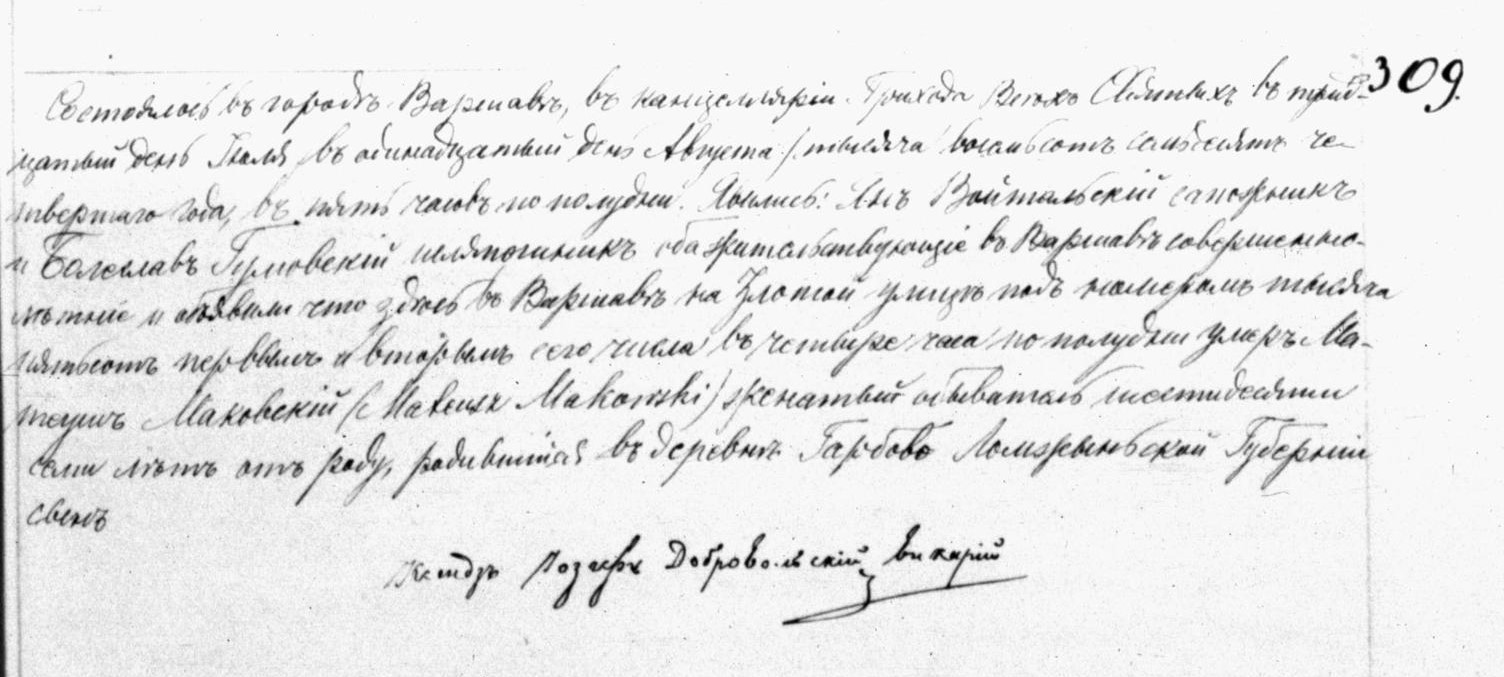 309.
Состоялось въ городѣ Варшавѣ, въ канцелляріи Прихода Всѣхъ Святыхъ въ трид-
цатый день Іюля /въ одинадцатый день Августа/ тысяча восемьсотъ семьдесятъ че-
твертаго года, въ пять часовъ по полудни. Явились: Янъ Войтальскій сапожникъ
и Болеславъ Гумовскій шляпочникъ оба жительствующіе въ Варшавѣ совершенно-
лѣтніе и объявили что здѣсь въ Варшавѣ на Злотой улицѣ подъ номеромъ тысяча
пятьсотъ первымъ и вторымъ сего числа въ четыре часа по полудни умеръ Ма-
теушъ Маковскій /Mateusz Makowski/ женатый обыватель шестидесяти
семи лѣтъ отъ роду, родившійся въ деревнѣ Гарбово Ломжиньской Губерніи
Ксендзъ Іозефъ Добровольскій викарій